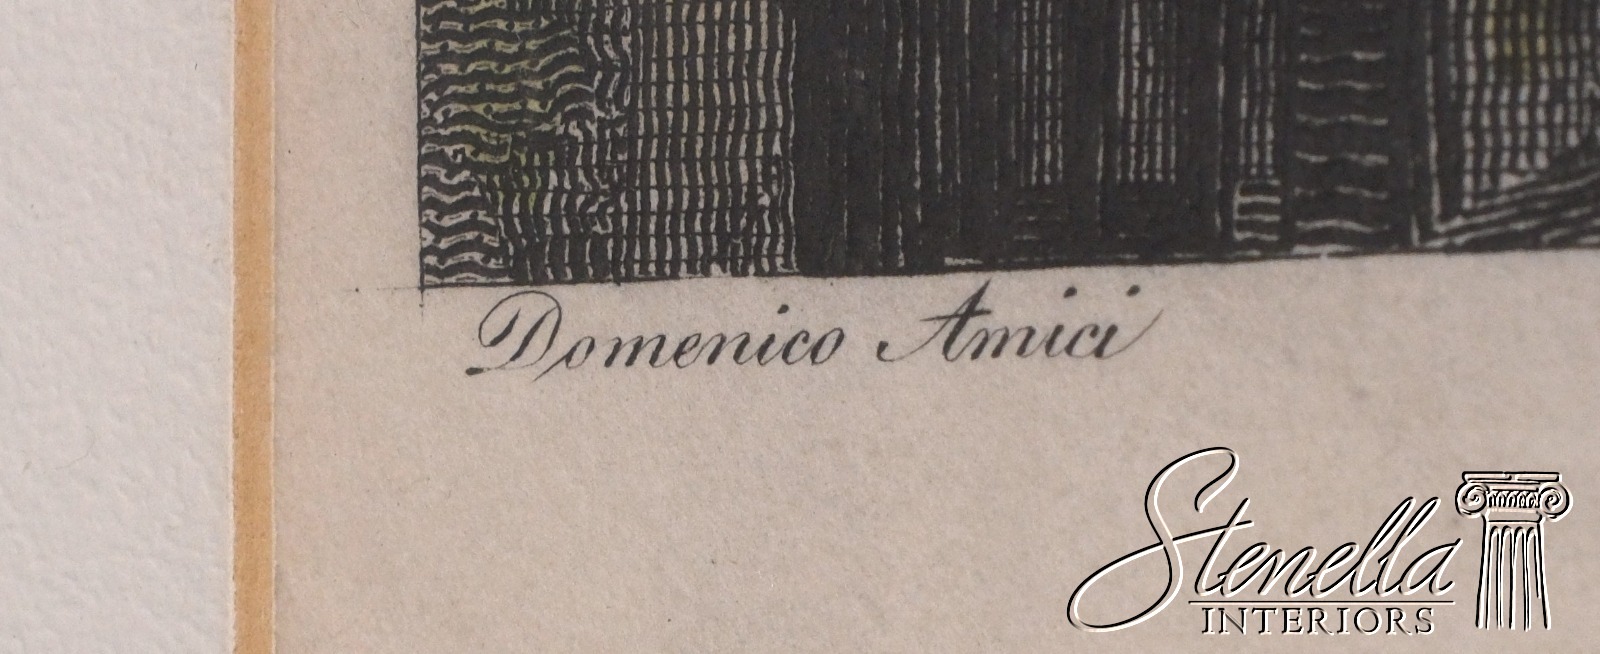 Domenico Amici
Stenella
INTERIORS